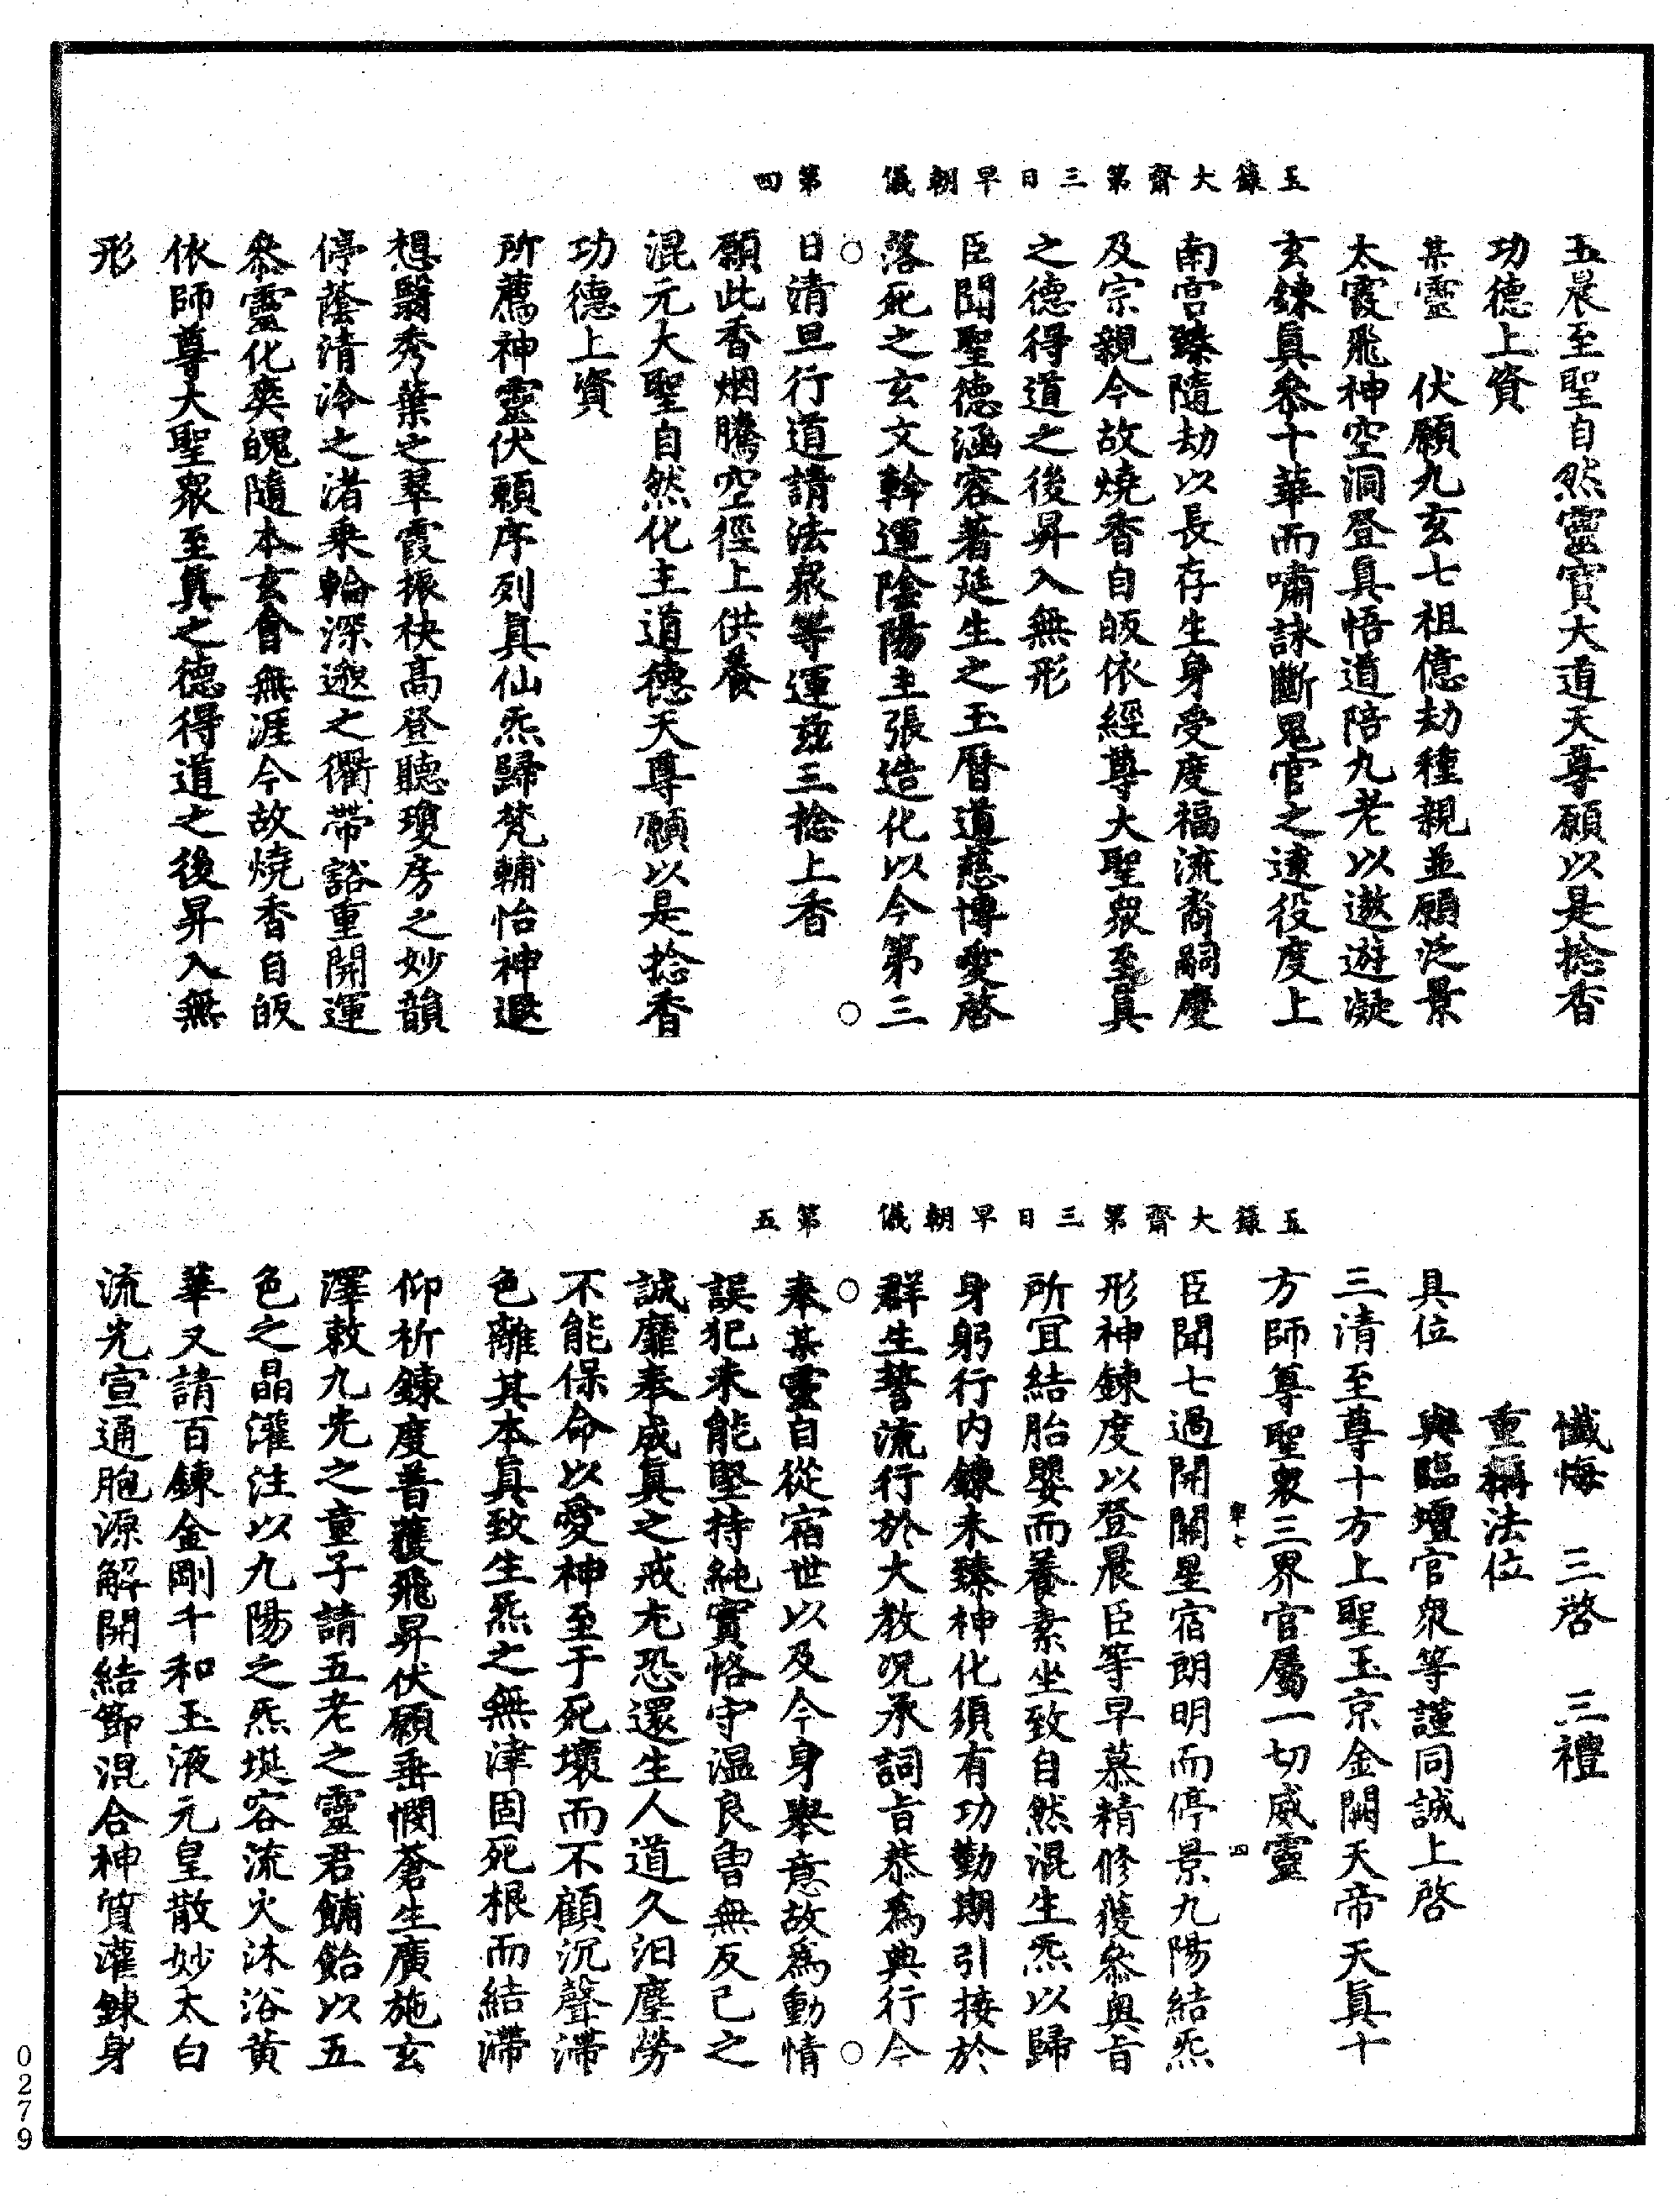 玉籙大齋第三日早朝儀　第四
玉晨至聖自然靈寶大道天尊願以是捻香
功德上資
某靈　伏願九玄七祖億劫種親並願泛景
太霞飛神空洞登真悟道陪九老以遨遊凝
玄鍊真叅十華而嘯詠斷鬼官之逮役度上
南宮臻隨劫以長存生身受度福流裔嗣慶
及宗親今故燒香自皈依經尊大聖衆至真
之德得道之後昇入無形
臣聞聖德涵容著延生之玉曆道慈博愛啓
落死之玄文幹運陰陽主張造化以今第三
日清旦行道請法衆等運茲三捻上香
願此香烟騰空徑上供養
混元大聖自然化主道德天尊願以是捻香
功德上資
所薦神靈伏願序列真仙炁歸梵輔怡神遐
想翳秀葉之翠霞振袂高登聽瓊房之妙韻
停蔭清泠之渚乘輪深邃之衢帶豁重開運
叅靈化爽魄隨本玄會無涯今故燒香自皈
依師尊大聖衆至真之德得道之後昇入無
形
玉籙大齋第三日早朝儀　第五
懺悔　三啓　三禮
重稱法位
具位　與臨壇官衆等謹同誠上啓
三清至尊十方上聖玉京金闕天帝天真十
方師尊聖衆三界官屬一切威靈
臣聞七過開關星宿朗明而停景九陽結炁
形神鍊度以登晨臣等早慕精修獲叅奧旨
所冝結胎嬰而養素坐致自然混生炁以歸
身躬行内鍊未臻神化須有功勤期引接於
群生誓流行於大教况承詞旨恭爲典行今
奉某靈自從宿世以及今身舉意故爲動情
誤犯未能堅持純實恪守温良曽無反己之
誠靡奉成真之戒尢恐還生人道久汨塵勞
不能保命以愛神至于死壞而不顧沉聲滯
色離其本真致生炁之無津固死根而結滯
仰祈鍊度普獲飛昇伏願垂憫蒼生廣施玄
澤敕九光之童子請五老之靈君餔飴以五
色之晶灌注以九陽之炁堪容流火沐浴黄
華又請百鍊金剛千和玉液元皇散妙太白
流光宣通胞源解開結節混合神質灌鍊身
章七
四
0279